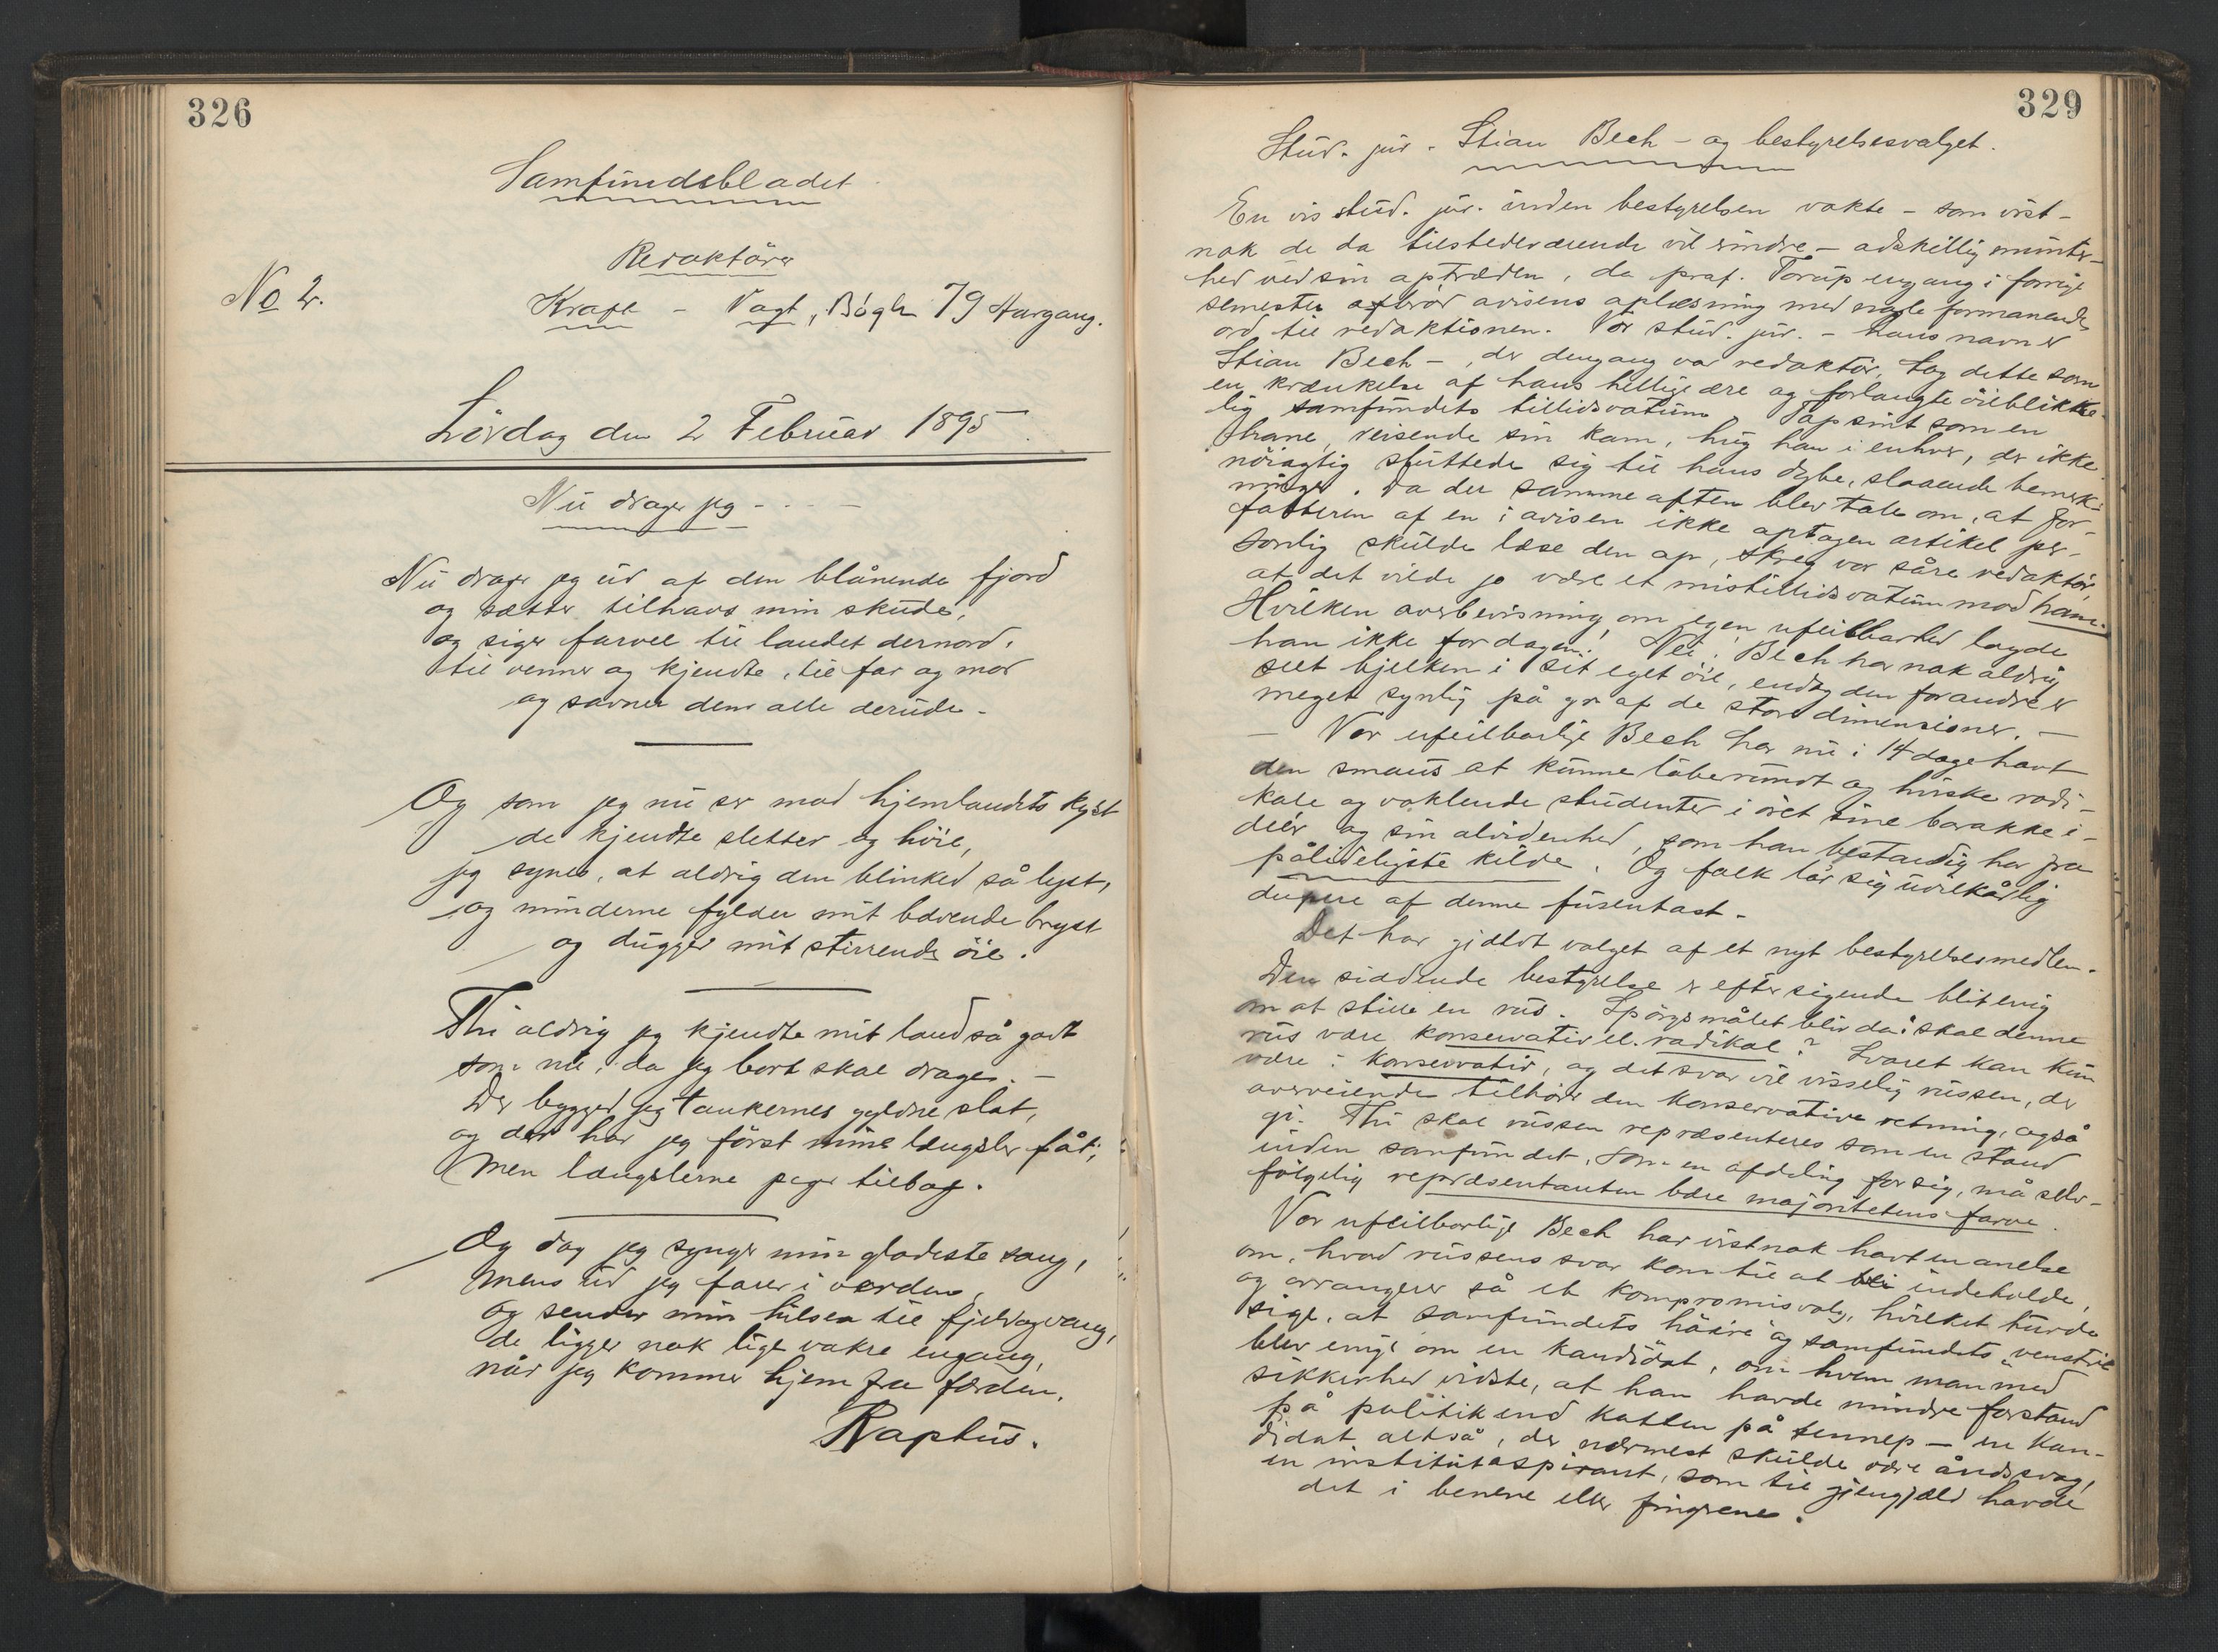 326
Samfundsbladet
Redaktörer
No 2.
Krafl - Vogt, Bögh 79 Aargang.
Lördag den 2 Februar 1895.
Nu drager jeg - - - -
Nu drager jeg ud af den blånende fjord
og sætter tilhavs min skude,
og siger farvel til landet dernord,
til venner og kjendte, til far og mor
og savner dem alle derude.
Og som jeg nu ser mod hjemlandets kyst
de kjendte sletter og höie,
jeg synes, at aldrig den blinked så lyst,
og minderne fylder mit bævende bryst
og dugger mit stirrende öie.
Thi aldrig jeg kjendte mit land så godt
som nu, da jeg bort skal drages. -
Der bygged jeg tankernes gyldne slot,
og der har jeg först mine længsler fåt;
men længslerne peger tilbage.
Og dog jeg synger min gladeste sang,
mens ud jeg farer i verden,
og sender min hilsen til fjeld og vang,
de ligger nok lige vakre engang,
når jeg kommer hjem fra færden.
Raptus.
329
Stud. jur. Stian Bech - og bestyrelsesvalget.
En vis stud. jur. inden bestyrelsen vakte - som vist-
nok de da tilstedeværende vil erindre - adskillig munter-
hed ved sin optræden, da prof. Torup engang i forrige
semester afbröd avisens oplæsning med nogle formanende
ord til redaktionen. Vor stud. jur. - hans navn er
Stian Bech -, der dengang var redaktör, tog dette som
en krænkelse af hans hellige ære og forlangte öieblikke-
lig samfundets tillidsvotum. Tapsint som en
hane, reisende sin kam, hug han i enhver, der ikke
nöiagtig sluttede sig til hans dybe, slaaende bemærk-
ninger. Da der samme aften blev tale om, at for-
fatteren af en i avisen ikke optagen artikel per-
sonlig skulde læse den op, skreg vor såre redaktör,
at det vilde jo være et mistillidsvotum mod ham.
Hvilken overbevisning om egen ufeilbarhed lagde
han ikke for dagen! Nei, Bech har nok aldrig
seet bjelken i sit eget öie, endog den for andre er
meget synlig på gr. af de store dimensioner. -
- Vor ufeilbarlige Bech har nu i 14 dage havt
den smaus at kunne löbe rundt og hviske radi-
kale og vaklende studenter i öret sine barakke i-
déer og sin alvidenhed, som han bestandig har fra
pålideligste kilde. Og folk lar sig uvilkårlig
dupere af denne fusentast.
Det har gjældt valget af et nyt bestyrelsesmedlem.
Den siddende bestyrelse er efter sigende blit enig
om at stille en rus. Spörgsmålet blir da: skal denne
rus være konservativ el. radikal? Svaret kan kun
være: konservativ, og det svar vil visselig russen, der
overveiende tilhörer den konservative retning, også
gi. Thi skal russen repræsenteres som en stand
inden samfundet, som en afdeling for sig, må selv-
fölgelig repræsentanten bære majoritetens farve.
Vor ufeilbarlige Bech har vistnok havt en anelse
om, hvad russens svar kom til at indeholde,
og arrangerer så et kompromisvalg, hvilket turde
sige, at samfundets "höire" og samfundets "venstre"
blev enige om en kandidat, om hvem man med
sikkerhed vidste, at han havde mindre forstand
på politik end katten på sennep - en kan-
didat altså, der nærmest skulde være åndssvag,
en institutaspirant, som til gjengjæld havde
det i benene eller fingrene.